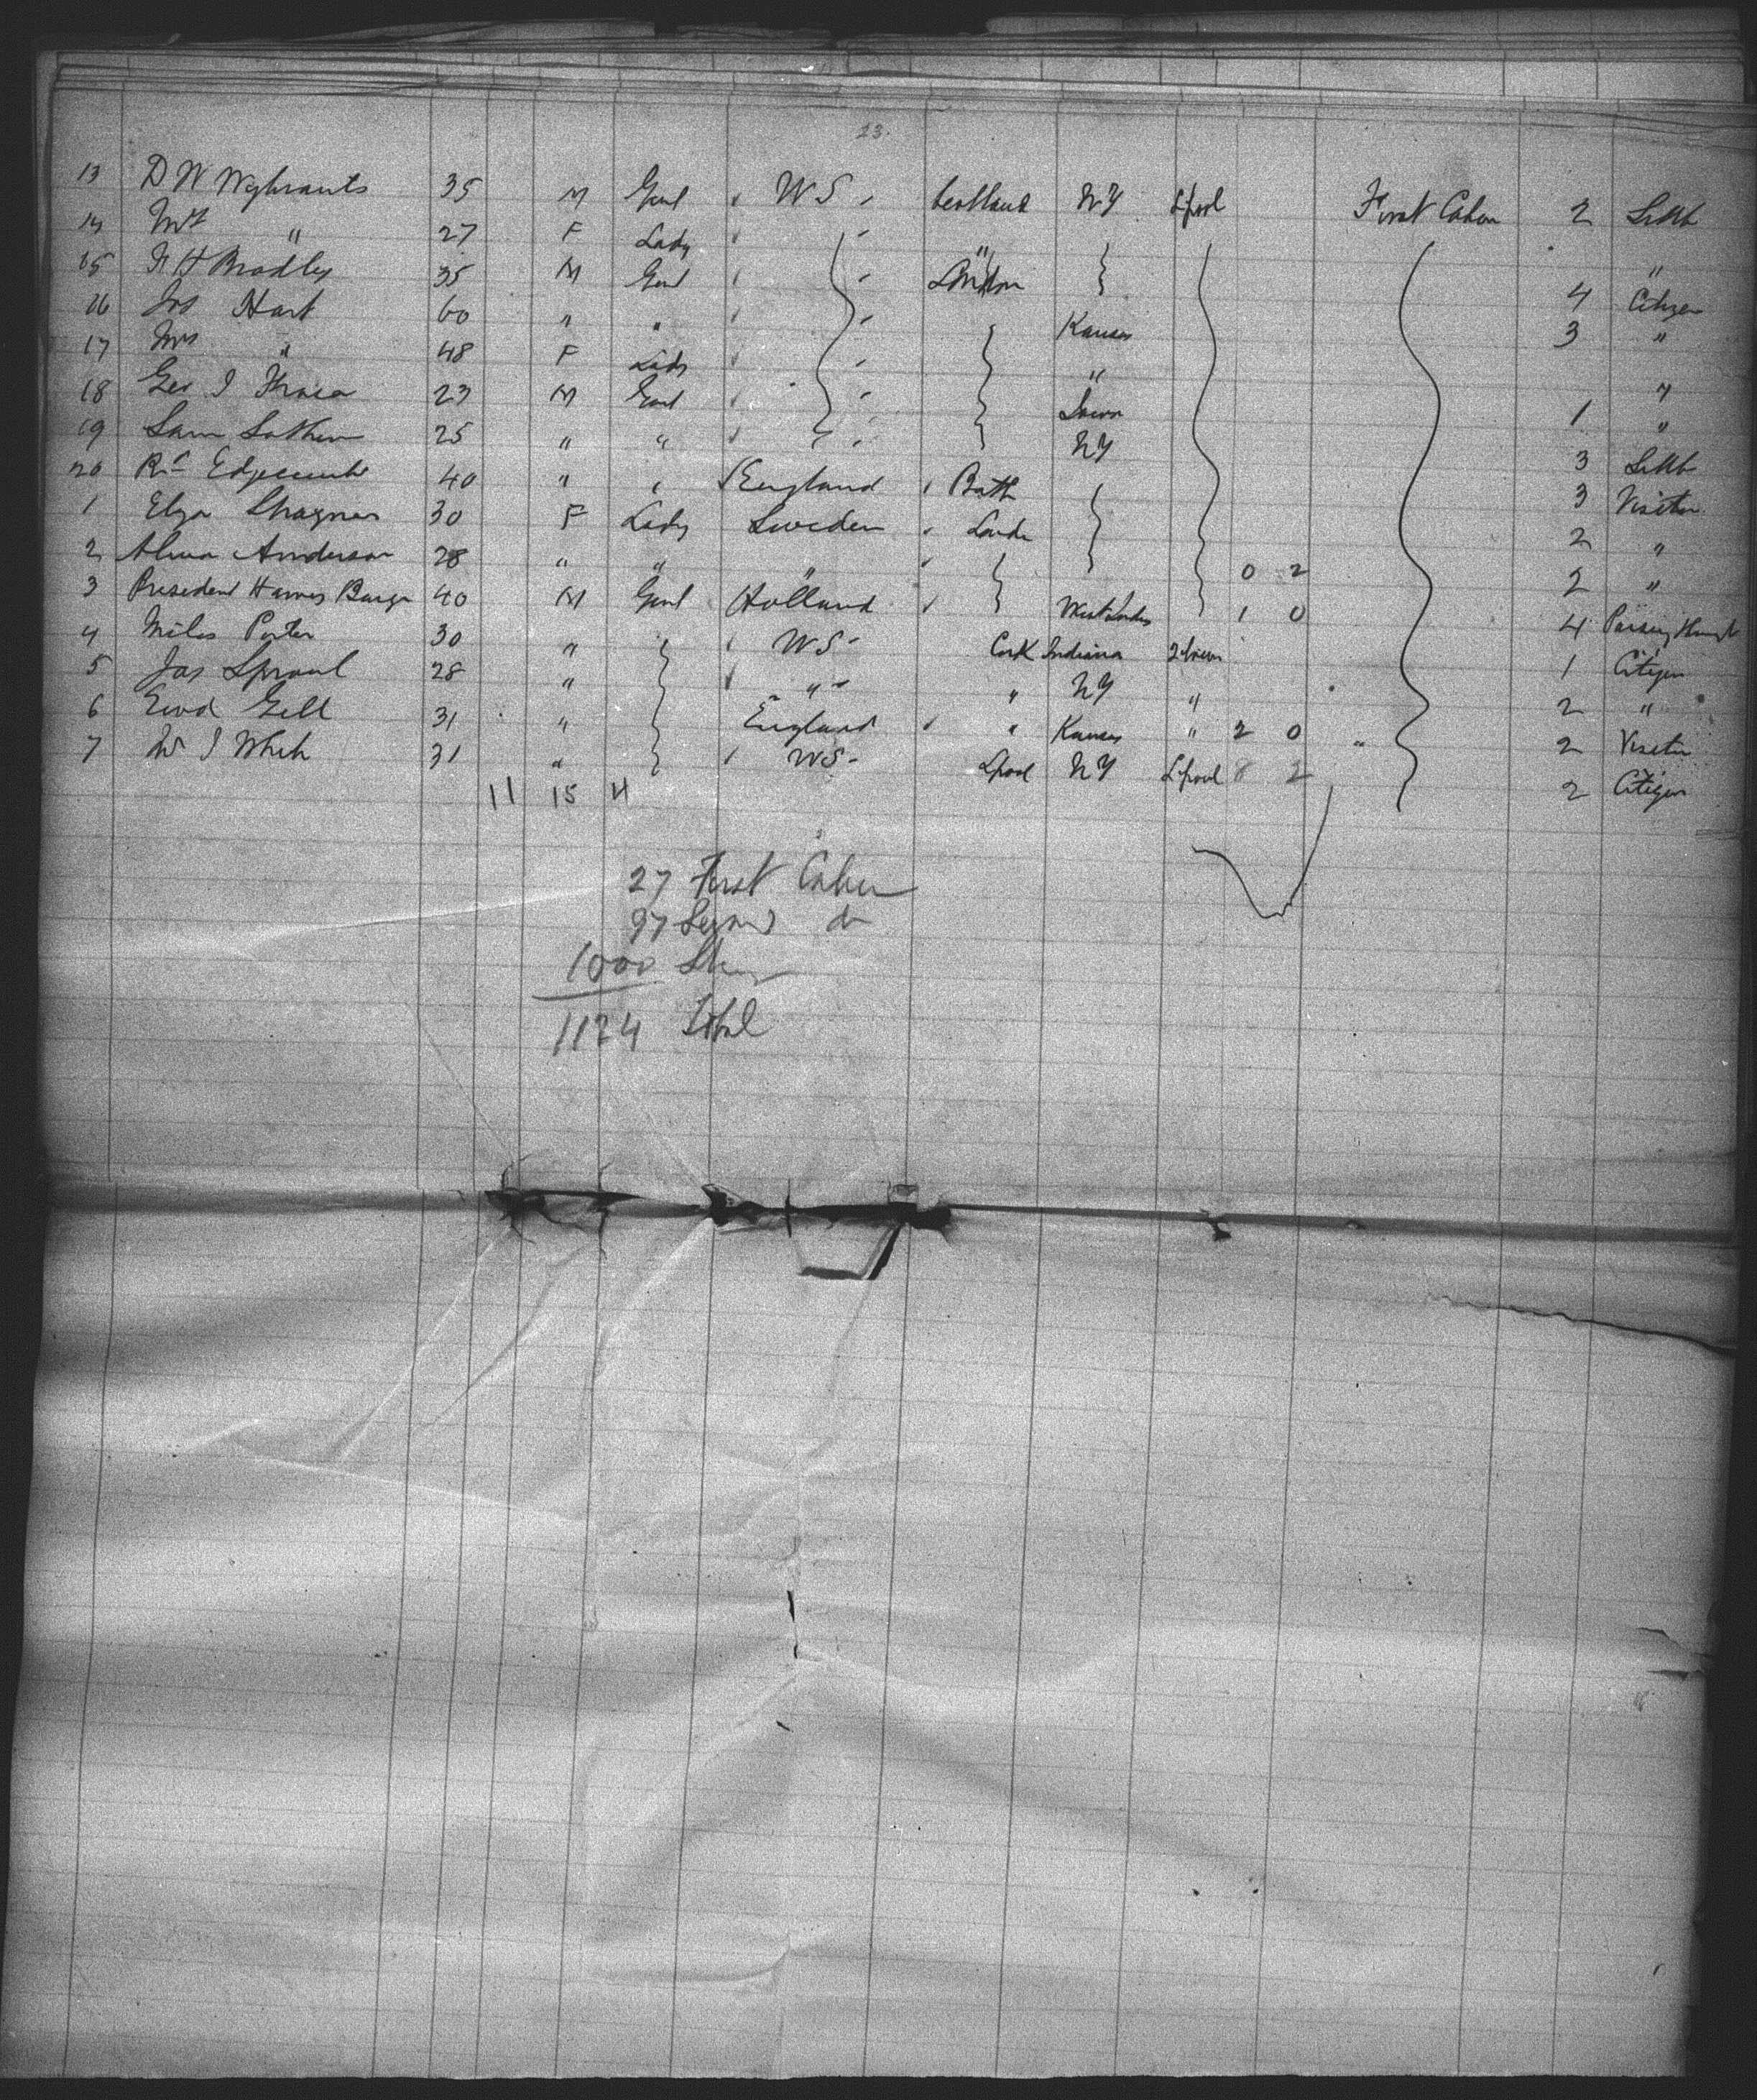 23.
13 D W Wybrants 35 M Gent W S Scotland NY L'pool First Cabin 2 Settlr
14 Mrs " 27 F Lady " "
15 H Bradley 35 M Gent London 4 Citizen
16 Jos Hart 60 " " Kansas 3 "
17 Mrs " 48 F Lady " "
18 Geo J 23 M Gent 1 "
19 Sam 25 " " NY 3 Settlr
20 Rd Edgecumbe 40 " " England Bath 3 Visitor
1 Eliza 30 F Lady Sweden London 2 "
2 Alma Anderson 28 " " " 0 2 2 "
3 President 40 M Gent Holland 1 0 4 Passing
4 Miles Porter 30 " W S Cork Indiana 1 Citizen
5 Jas Sproul 28 " " " NY " 2 "
6 Ewd Gell 31 " England " Kansas " 2 0 " 2 Visitor
7 W J White 31 " W S L'pool NY L'pool 8 2 2 Citizen
11 15 4
27 First Cabin
97 Second do
1000
1124 Total